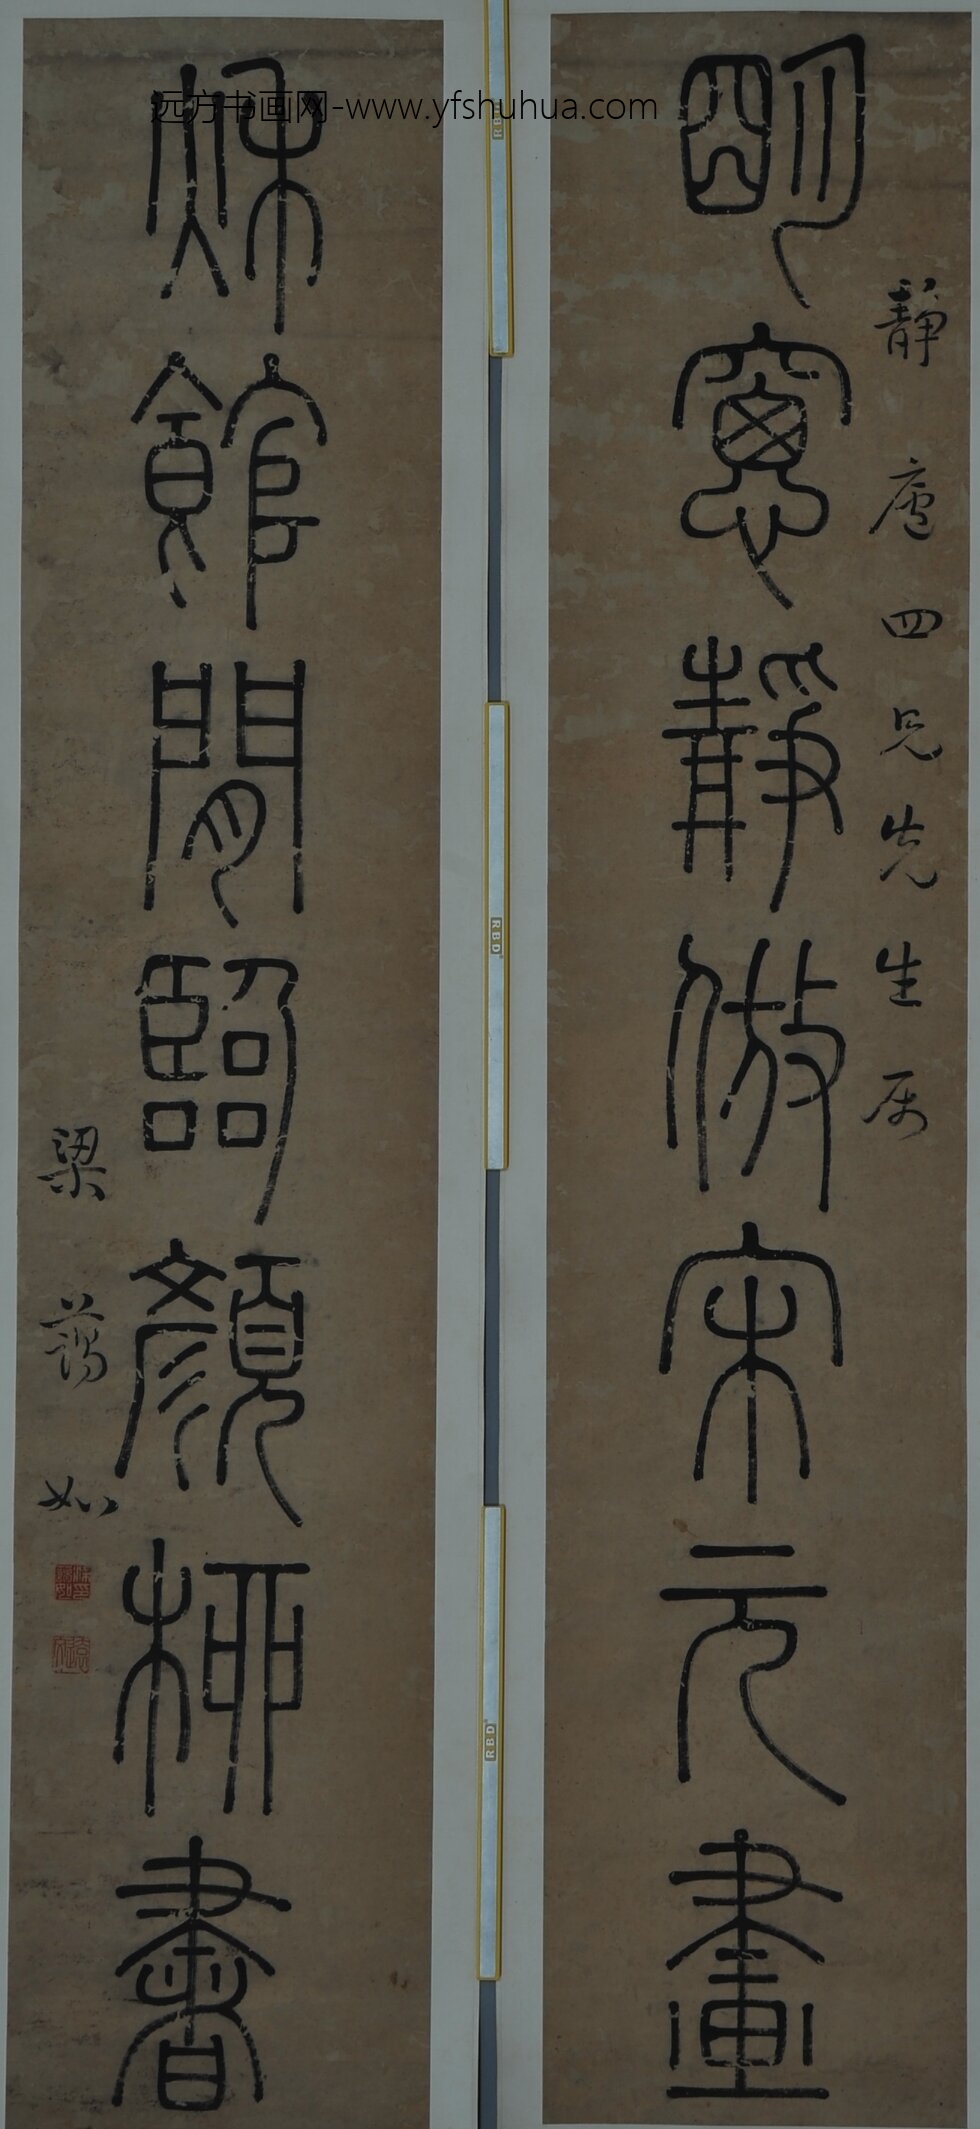 远方书画网-www.yfshuhua.com
明窻静仿宋元畫
靜庵四兄先生属
秌館閒臨顔柳書
梁藹如
RBD
RBD
RBD